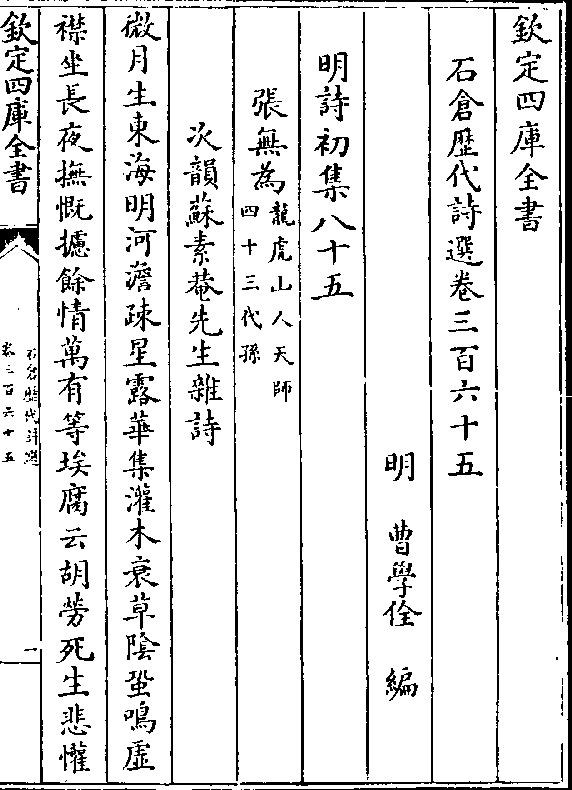 欽定四庫全書
石倉歷代詩選卷三百六十五
明 曹學佺 編
明詩初集八十五
張無為龍虎山人天師
四十三代孫
次韻蘇素菴先生雜詩
微月生東海明河澹疎星露華集灌木衰草陰蛩鳴虛
襟坐長夜撫慨攄餘情萬有等埃腐云胡勞死生悲懽
欽定四庫全書
石倉歷代詩選
卷三百六十五
一